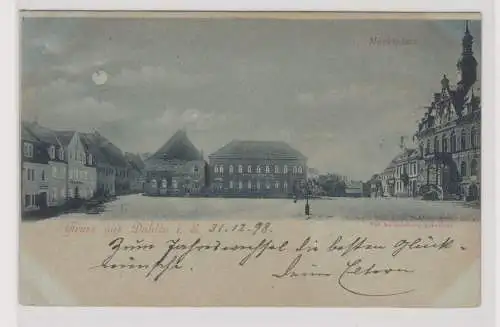 Marktplatz
Gruss aus Dahlen i. S. 31.12.98.
Zum Jahreswechsel die besten Glück-
wünsche. Deine Eltern